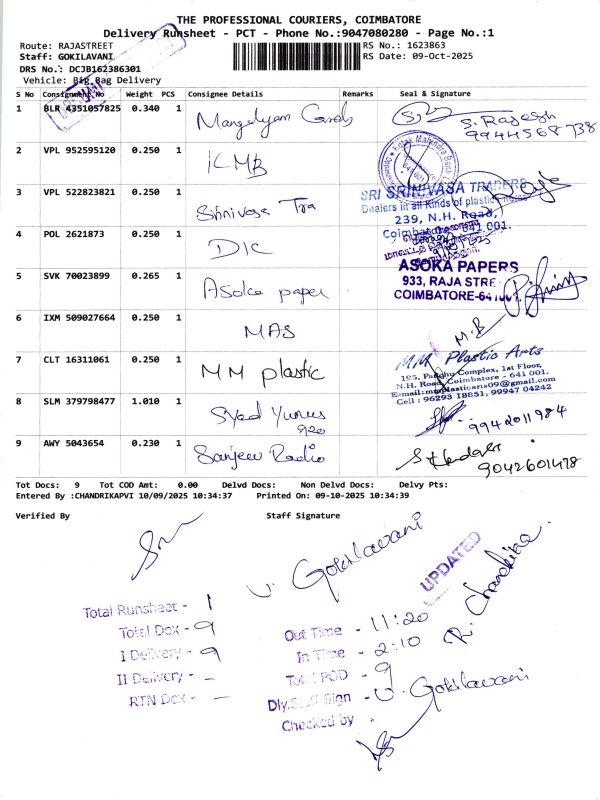 THE PROFESSIONAL COURIERS, COIMBATORE
Delivery Runsheet - PCT - Phone No.:9047080280 - Page No.:1
Route: RAJASTREET
RS No.: 1623863
Staff: GOKILAVANI
RS Date: 09-Oct-2025
DRS No.: DCJB162386301
Vehicle: Big Bag Delivery
S No Consignment No Weight PCS Consignee Details Remarks Seal & Signature
1 BLR 4351057825 0.340 1 Mangalyam Cards S. Rajesh
9944568738
2 VPL 952595120 0.250 1 KMB
Kotak Mahindra Bank
3 VPL 522823821 0.250 1 Srinivasa Tra
SRI SRINIVASA TRADERS
Dealers in all Kinds of plastic
239, N.H. Road,
Coimbatore - 641 001.
4 POL 2621873 0.250 1 DIC
5 SVK 70023899 0.265 1 Asoka paper
ASOKA PAPERS
933, RAJA STRE
COIMBATORE-641001.
6 IXM 509027664 0.250 1 MAS M.B
7 CLT 16311061 0.250 1 MM plastic
MM Plastic Arts
195, Complex, 1st Floor,
N.H. Road, Coimbatore - 641 001.
E-mail:mmplasticarts09@gmail.com
Cell : 96293 18851, 99947 04242
8 SLM 379798477 1.010 1 Syed Yunus
920
9942011984
9 AWY 5043654 0.230 1 Sanjeev Radio
9042601478
Tot Docs: 9 Tot COD Amt: 0.00 Delvd Docs: Non Delvd Docs: Delvy Pts:
Entered By :CHANDRIKAPVI 10/09/2025 10:34:37 Printed On: 09-10-2025 10:34:39
Verified By Staff Signature
V. Gokilavani
UPDATED
R. Chandrika
Total Runsheet - 1
Total Dox - 9
I Delivery - 9
II Delivery - -
RTN Dox - -
Out Time - 11:20
In Time - 2:10
Total POD - 9
Dly.Staff Sign - V. Gokilavani
Checked by